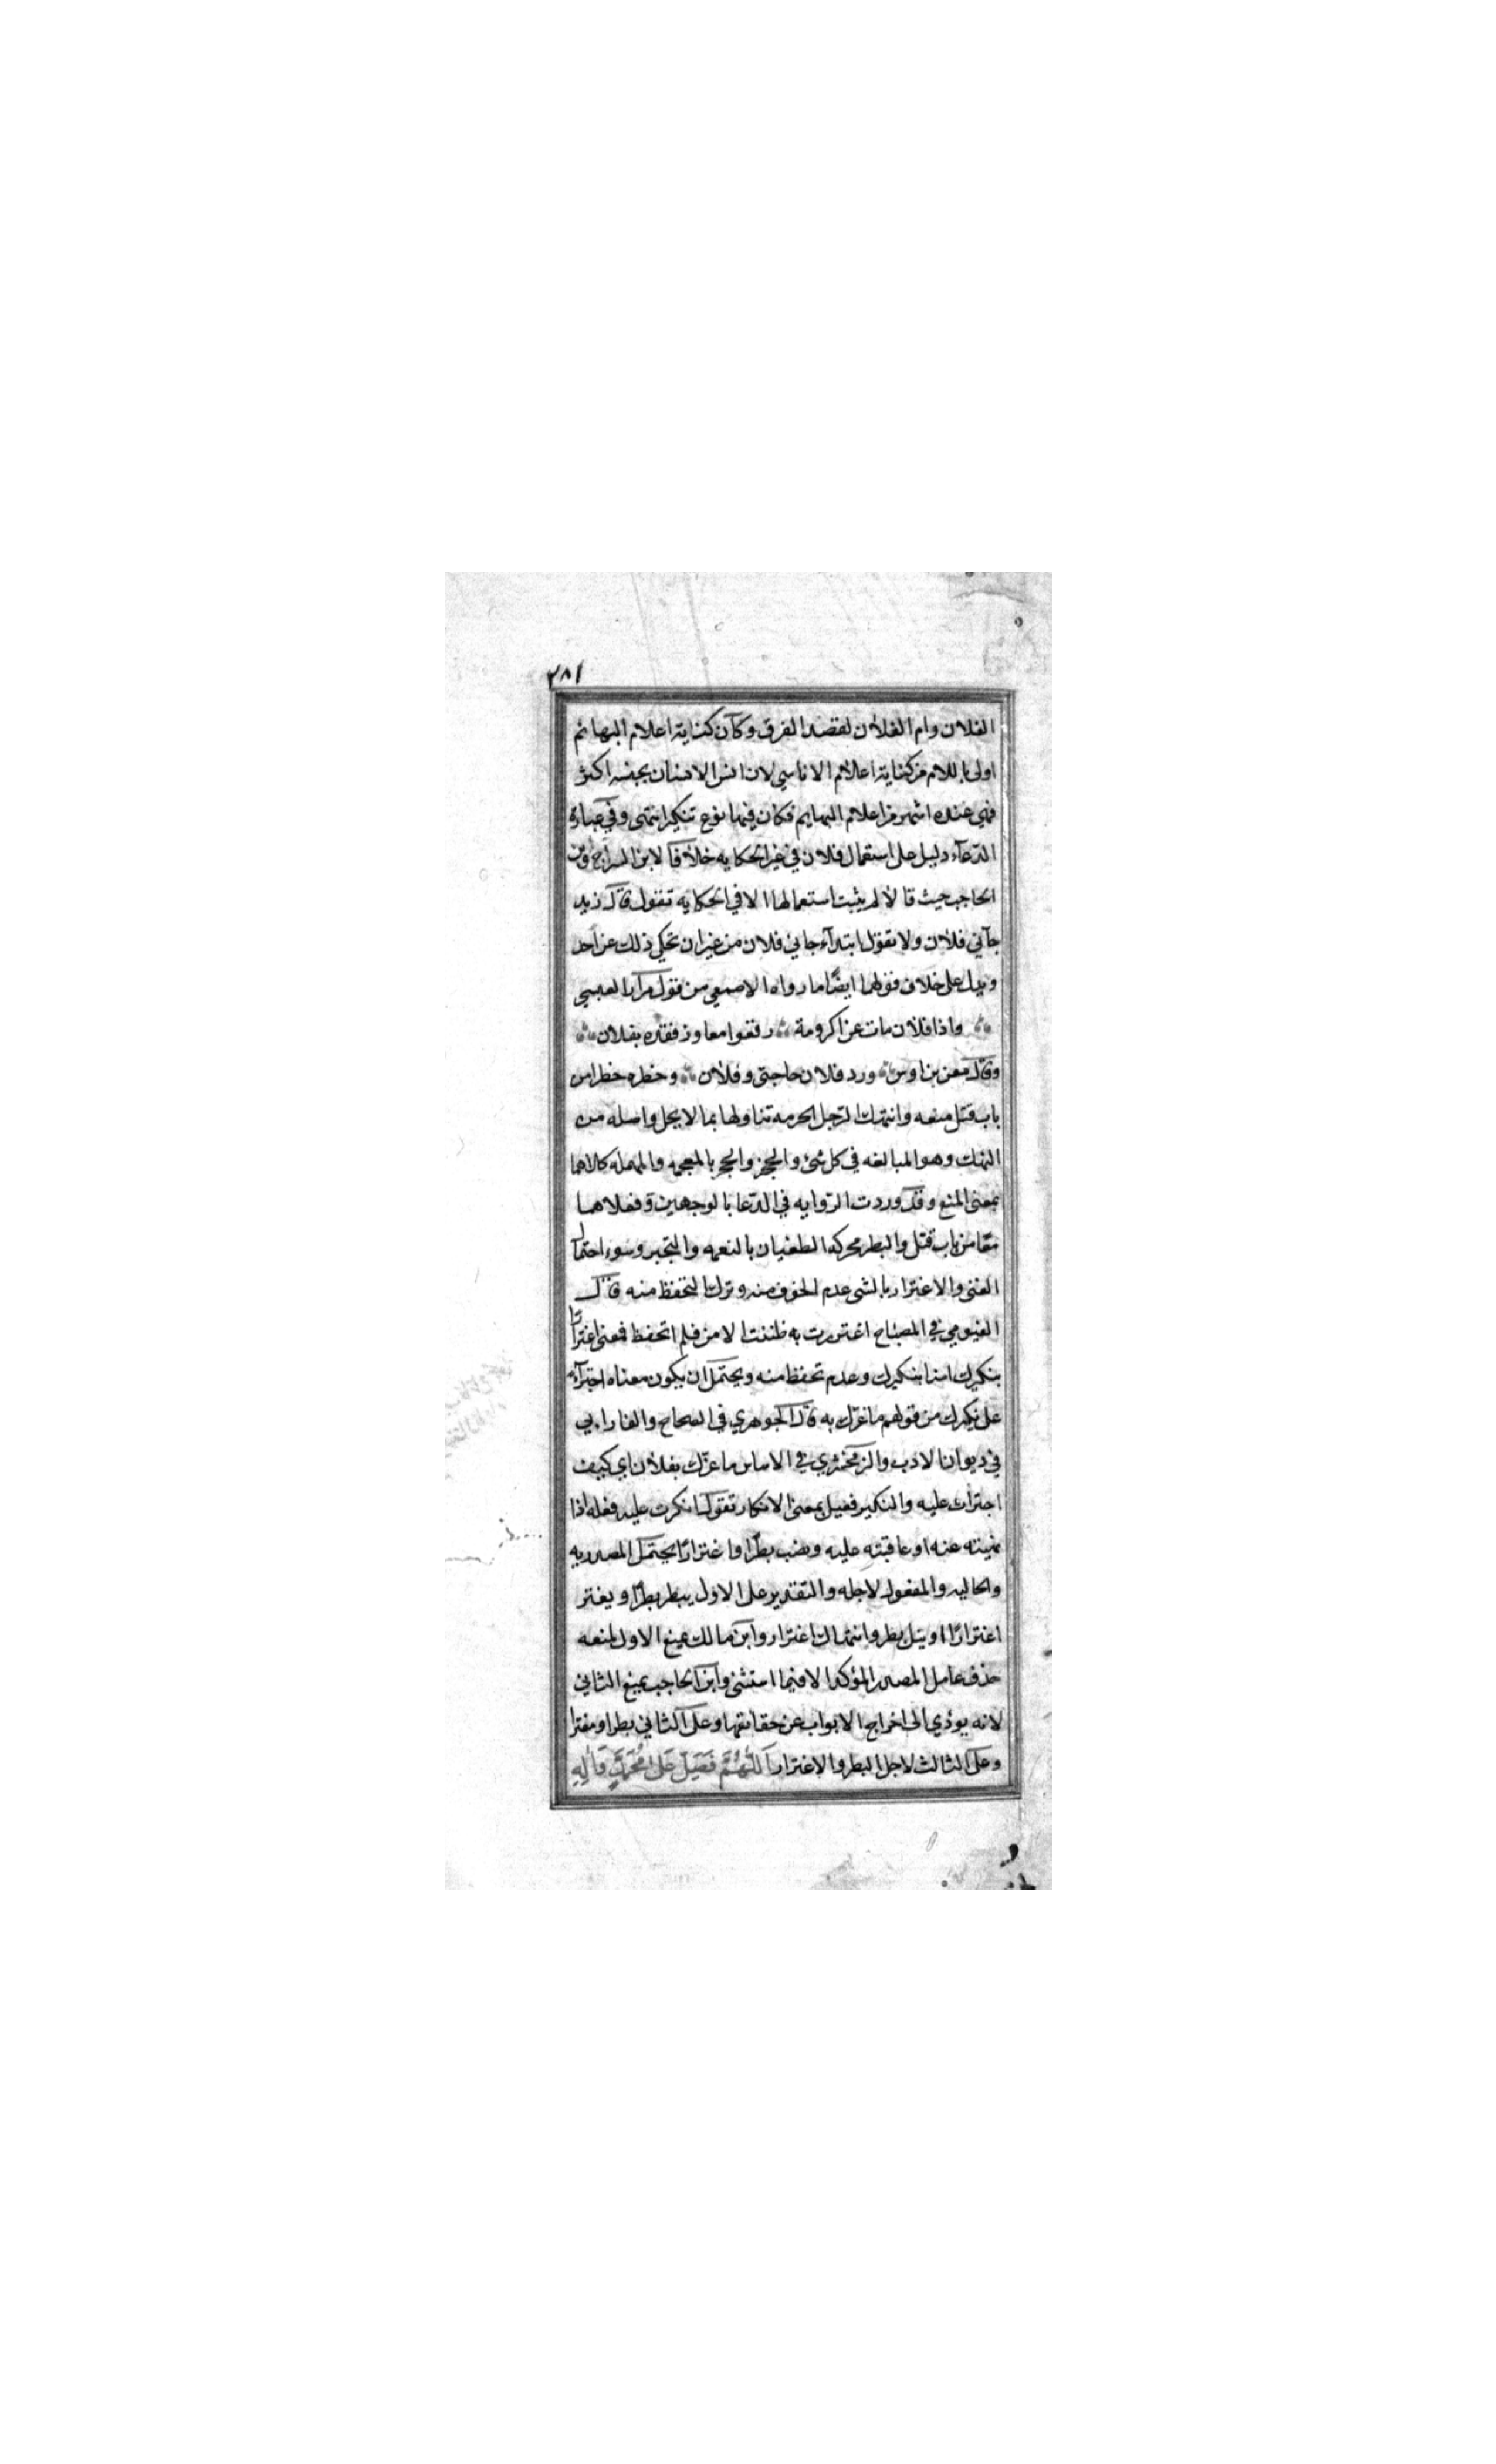 ٢٨١
الفلان وام الفلان لقصد الفرق وكان كناية اعلام البهائم
اولى باللام من كناية اعلام الاناسي لان انس الانسان بجنسه اكثر
فهي عنده اشهر من اعلام البهايم فكان فيها نوع تنكير انتهى وفي عبارة
الدعآء دليل على استعمال فلان في غير الحكايه خلافا لابن السراج وابن
الحاجب حيث قالا لم يثبت استعمالها الا في الحكايه تقول قال زيد
جآني فلان ولا تقول ابتدآء جاني فلان من غير ان تحكي ذلك عن احد
ويدل على خلاف قولهما ايضًا ما رواه الاصمعي من قول مرار العبسي
واذا فلان مات عن اكرومة رقعوا معاوز فقده بفلان
وقال معن بن اوس ورد فلان حاجتي وفلان وحظره حظرا من
باب قتل منعه وانتهك الرجل الحرمه تناولها بما لا يحل واصله من
النهك وهو المبالغه في كل شئ والحجز والحجر بالمعجمه والمهمله كلاهما
بمعنى المنع وقد وردت الروايه في الدعا بالوجهين وفعلاهما
معًا من باب قتل والبطر محركه الطغيان بالنعمه والتجبر وسوء احتمال
الغنى والاغترار بالشي عدم الخوف منه وترك التحفظ منه قال
الفيومي في المصباح اغتررت به ظننت الامن فلم اتحفظ فمعنى اغترارًا
بنكيرك امنا بنكيرك وعدم تحفظ منه ويحتمل ان يكون معناه اجترآء
على نكيرك من قولهم ما غرك به قال الجوهري في الصحاح والفارابي
في ديوان الادب والزمخشري في الاساس ما غرك بفلان اي كيف
اجترات عليه والنكير فعيل بمعنى الانكار تقول انكرت عليه فعله اذا
نهيته عنه او عاقبته عليه ونصب بطرًا واغترارًا يحتمل المصدريه
والحاليه والمفعول لاجله والتقدير على الاول يبطر بطرًا ويغتر
اغترارًا او ينتهك بطر وانتهاك اغترار وابن مالك يمنع الاول لمنعه
حذف عامل المصدر المؤكد الا فيما استثنى وابن الحاجب يمنع الثاني
لانه يودي الى اخراج الابواب عن حقائقها وعلى الثاني بطرا ومغترا
وعلى الثالث لاجل البطر والاغترار اَللّٰهُمَّ فَصَلِّ عَلىٰ مُحَمَّدٍ وَاٰلِهِ